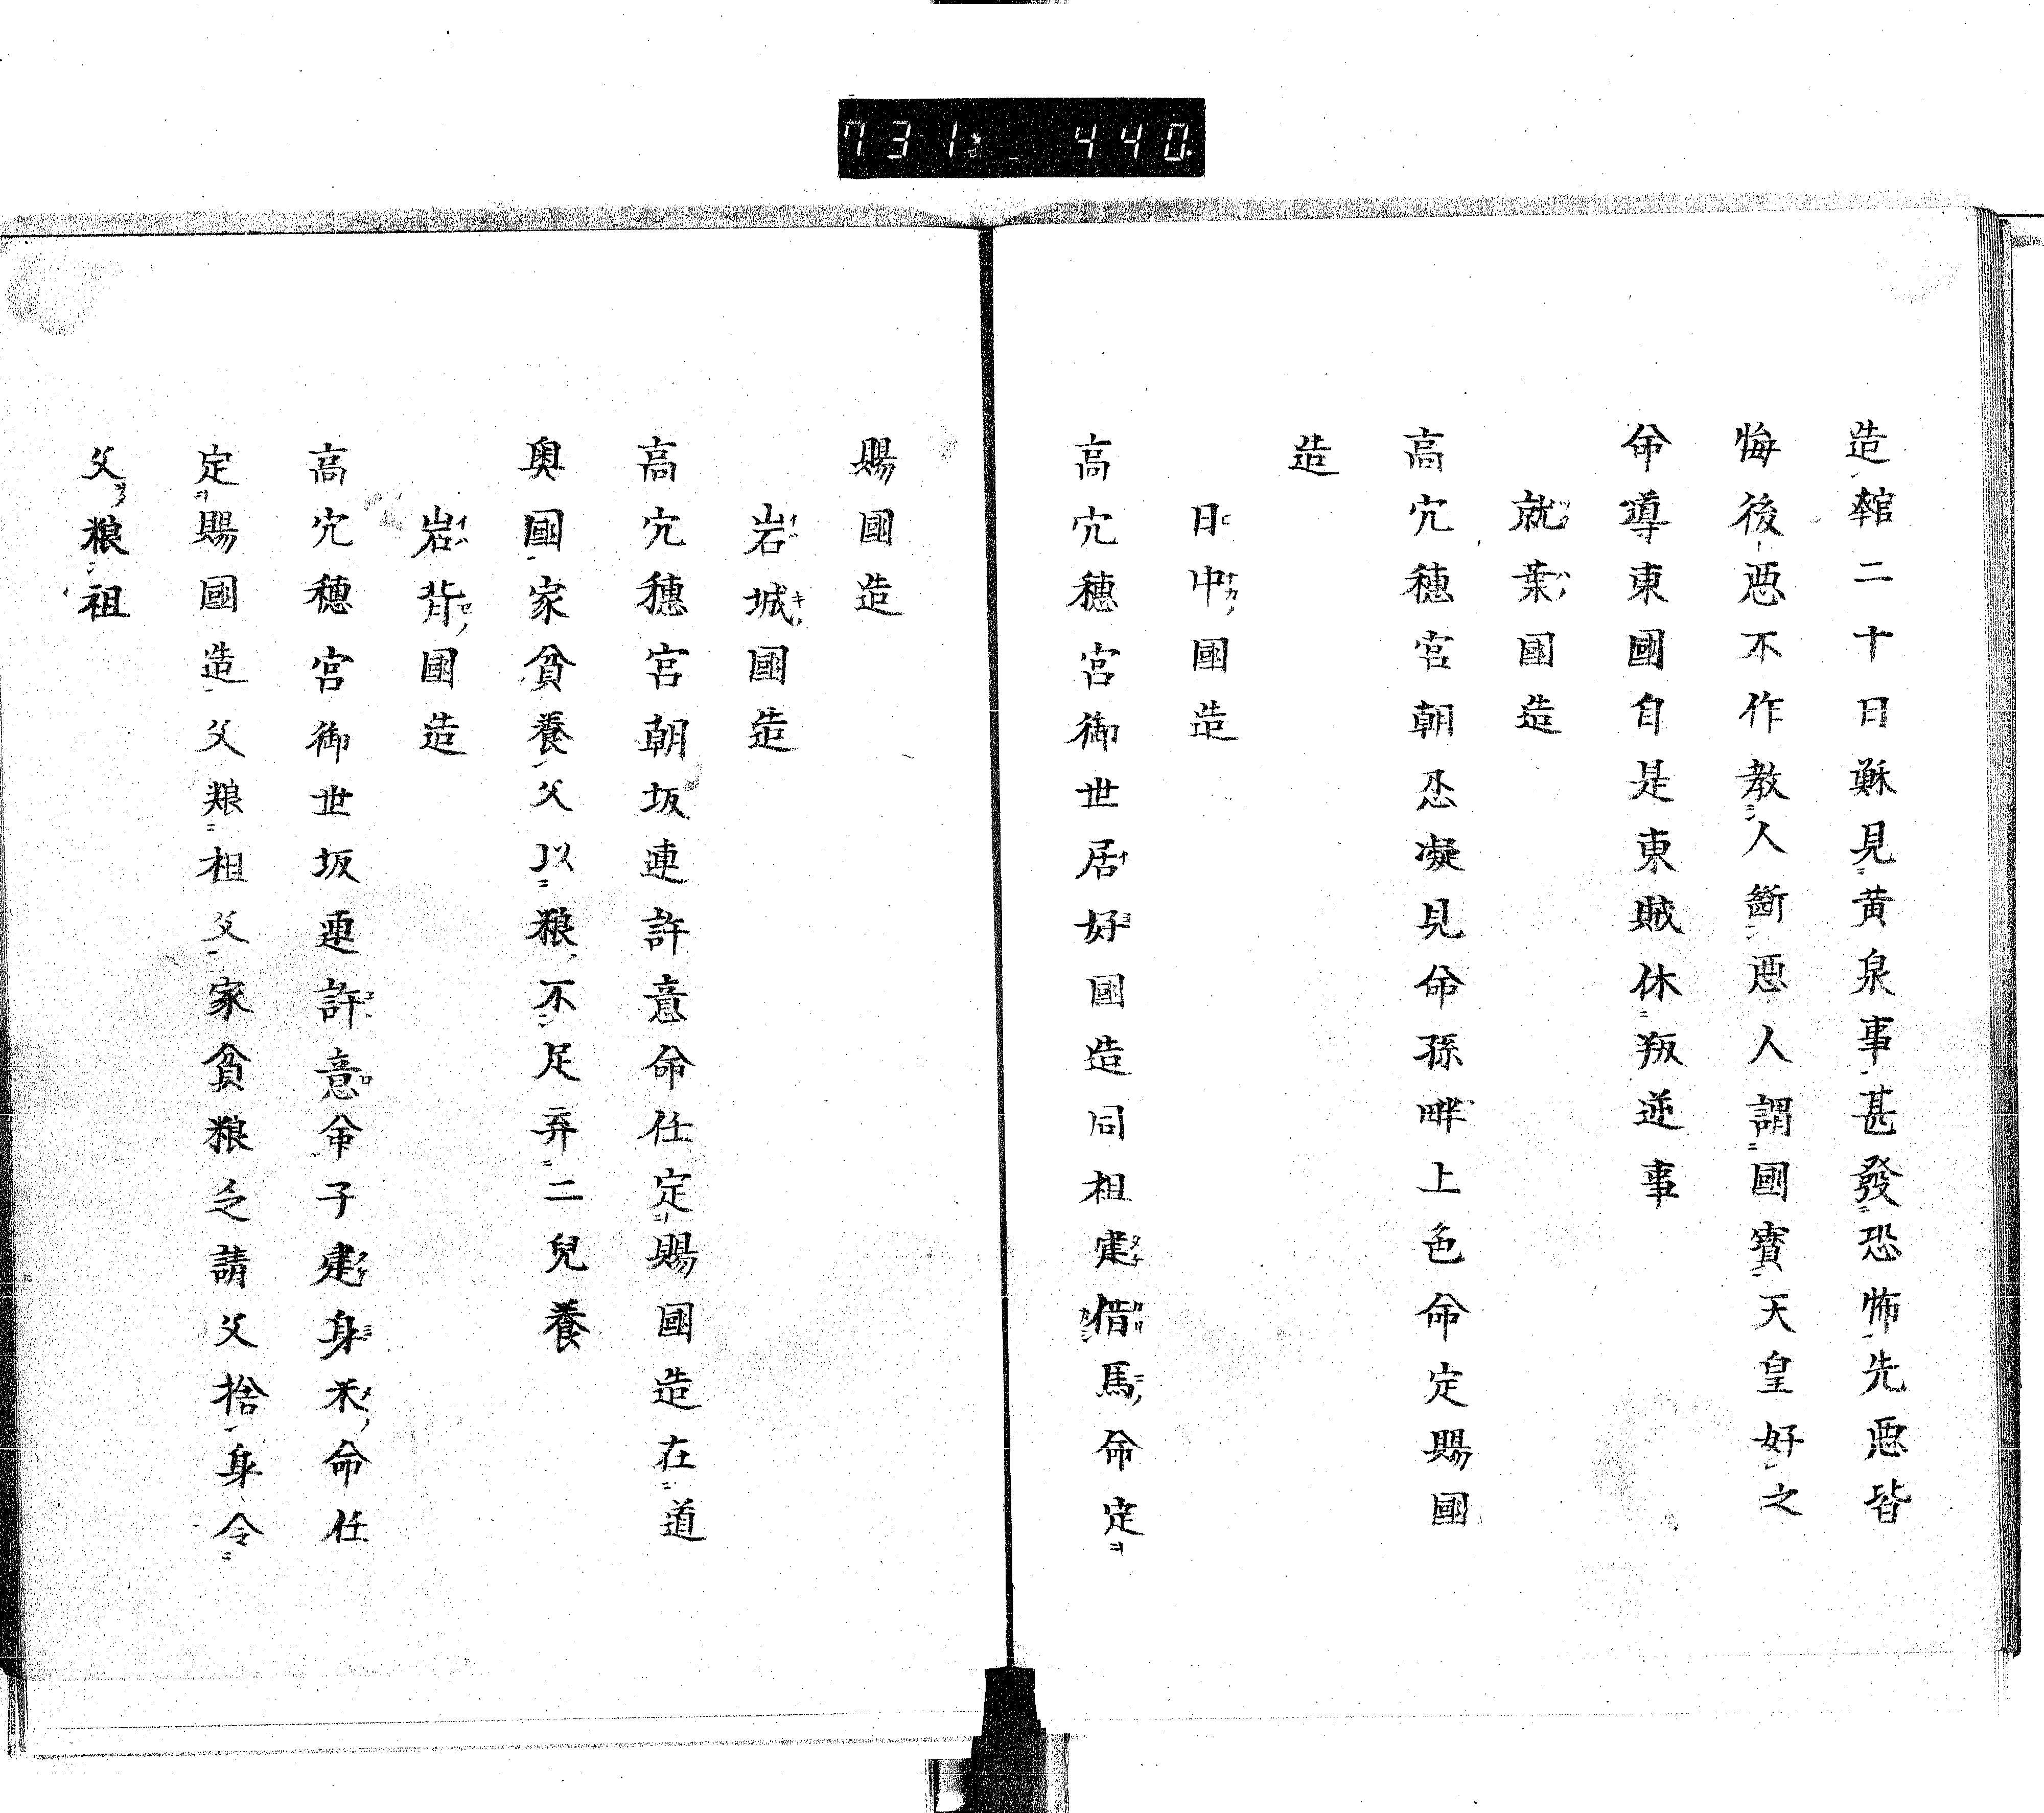 731 - 440
造舘二十日穌見黄泉事甚發恐怖先惡皆
悔後惡不作教人斷惡人謂國寳天皇好之
命導東國自是東賊休叛逆事
就葉國造
高穴穗宮朝忍凝見命孫畔上色命定賜國
造
日中國造
高穴穗宮御世居好國造同祖建借馬命定
賜國造
岩城國造
高穴穗宮朝坂連許意命任定賜國造在道
奥國家貧養父以粮不足弃二兒養
岩背國造
高穴穗宮御世坂連許意命子建身禾命任
定賜國造父粮祖父家貧粮乏請父捨身令
父粮祖